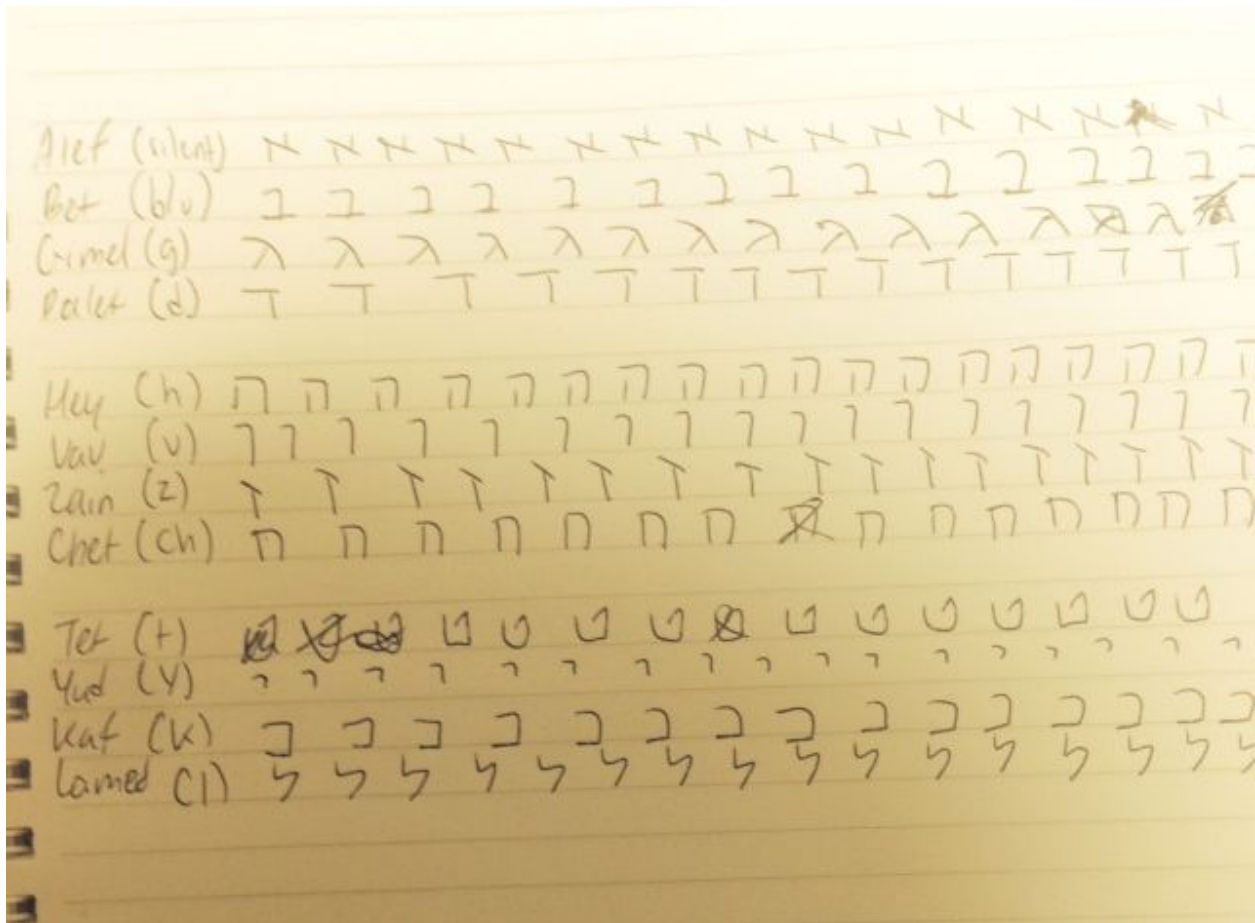 Alef (silent) א א א א א א א א א א א א א א א
Bet (b/v) ב ב ב ב ב ב ב ב ב ב ב ב ב ב ב
Gimel (g) ג ג ג ג ג ג ג ג ג ג ג ג ג
Dalet (d) ד ד ד ד ד ד ד ד ד ד ד ד ד ד ד
Hey (h) ה ה ה ה ה ה ה ה ה ה ה ה ה ה ה ה ה ה
Vav (v) ו ו ו ו ו ו ו ו ו ו ו ו ו ו ו ו ו ו
Zain (z) ז ז ז ז ז ז ז ז ז ז ז ז ז ז ז ז ז
Chet (ch) ח ח ח ח ח ח ח ח ח ח ח ח ח ח
Tet (t) ט ט ט ט ט ט ט ט ט ט ט
Yud (y) י י י י י י י י י י י י י י י י י
Kaf (k) כ כ כ כ כ כ כ כ כ כ כ כ כ כ כ
Lamed (l) ל ל ל ל ל ל ל ל ל ל ל ל ל ל ל ל